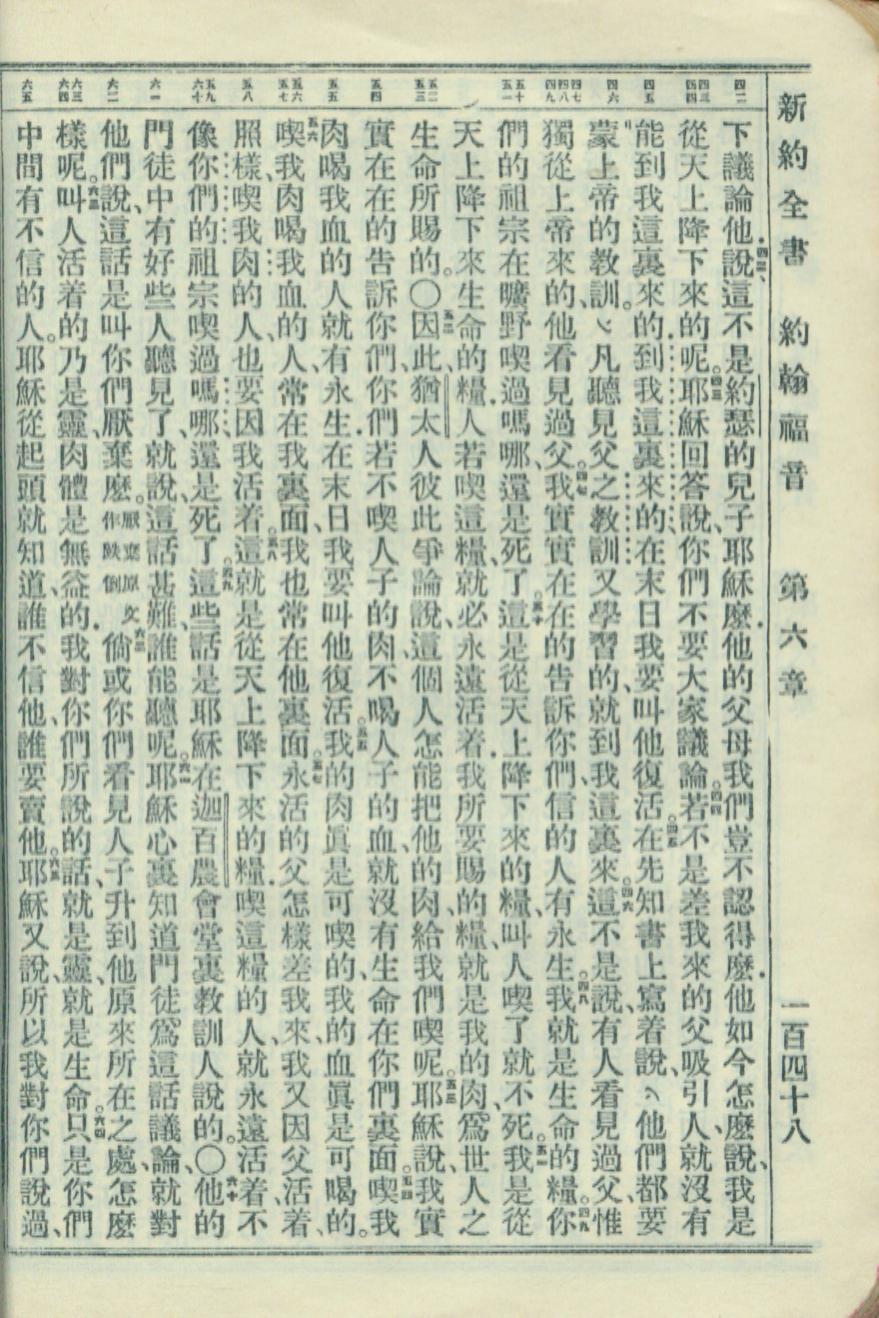 新約全書 約翰福音 第六章 一百四十八
四二
下議論他說、這不是約瑟的兒子耶穌麼他的父母我們豈不認得麼他如今怎麼說、我是
四三 四四
從天上降下來的呢。耶穌回答說、你們不要大家議論若不是差我來的父吸引人、就沒有
四五
能到我這裏來的到我這裏來的在末日我要叫他復活在先知書上寫着說、他們都要
四六
蒙上帝的教訓。凡聽見父之教訓又學習的、就到我這裏來。這不是說、有人看見過父、惟
四七 四八 四九
獨從上帝來的、他看見過父、我實實在在的告訴你們、信的人有永生。我就是生命的糧。你
五十 五一
們的祖宗在曠野喫過嗎哪、還是死了。這是從天上降下來的糧、叫人喫了就不死。我是從
天上降下來生命的糧人若喫這糧、就必永遠活着我所要賜的糧、就是我的肉、爲世人之
五二 五三
生命所賜的。〇因此、猶太人彼此爭論說、這個人怎能把他的肉、給我們喫呢。耶穌說、我實
五四
實在在的告訴你們、你們若不喫人子的肉、不喝人子的血、就沒有生命在你們裏面。喫我
五五
肉喝我血的人、就有永生在末日、我要叫他復活。我的肉眞是可喫的、我的血眞是可喝的。
五六 五七
喫我肉喝我血的人、常在我裏面、我也常在他裏面。永活的父怎樣差我來、我又因父活着、
五八
照樣、喫我肉的人、也要因我活着。這就是從天上降下來的糧喫這糧的人、就永遠活着、不
五九 六十
像你們的祖宗喫過嗎哪、還是死了。這些話、是耶穌在迦百農會堂裏教訓人說的。〇他的
六一
門徒中有好些人聽見了、就說、這話甚難、誰能聽呢。耶穌心裏知道門徒爲這話議論、就對
六二
他們說、這話是叫你們厭棄麼。厭棄原文作跌倒倘或你們看見人子升到他原來所在之處、怎麼
六三 六四
樣呢。叫人活着的乃是靈、肉體是無益的我對你們所說的話、就是靈、就是生命。只是你們
六五
中間有不信的人。耶穌從起頭就知道、誰不信他、誰要賣他。耶穌又說、所以我對你們說過、